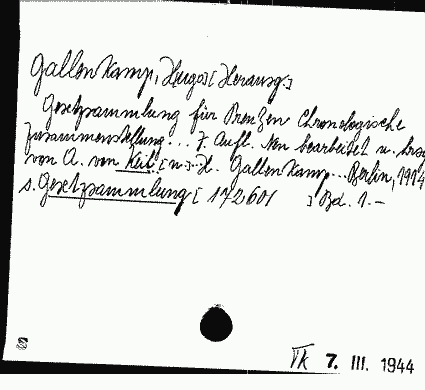 Gallenkamp, Hugo [Herausg.]
Gesetzsammlung für Preußen Chronologische
Zusammenstellung... 7. Aufl. Neu bearbeitet u. hrsg
von A. von Keil. [u.] H. Gallenkamp... Berlin, 1914
s. Gesetzsammlung [172601 ] Bd. 1.-
7. III. 1944